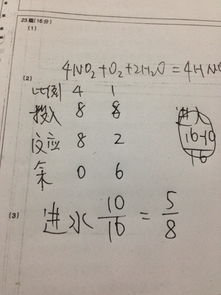 23题(16分)
(1)
4NO₂+O₂+2H₂O=4HN
(2)
比例 4 1
投入 8 8
反应 8 2
余 0 6
进入
16-10
16
(3)
进水 10/16 = 5/8